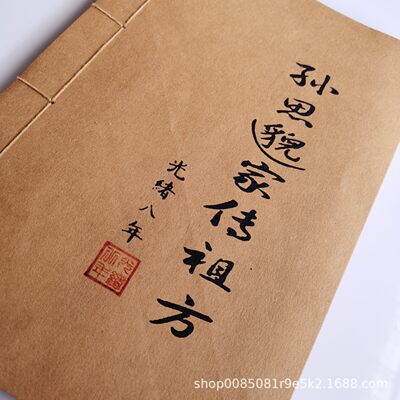 孙思邈家传祖方
光緒八年
shop0085081r9e5k2.1688.com